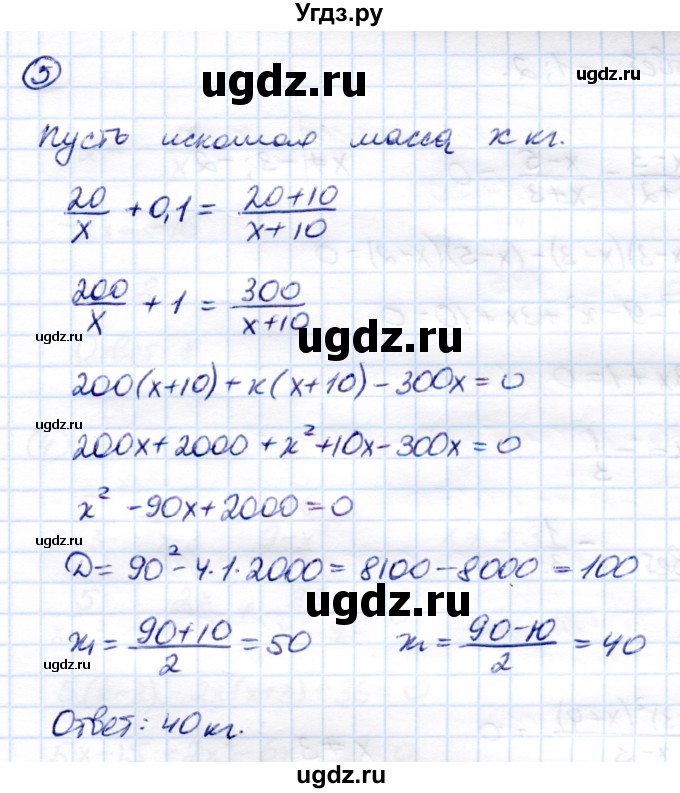 Угдз.ру
5
ugdz.ru
ugdz.ru
Пусть искомая масса x кг.
20/x + 0,1 = (20+10)/(x+10)
200/x + 1 = 300/(x+10)
ugdz.ru
ugdz.ru
200(x+10) + x(x+10) - 300x = 0
200x + 2000 + x² + 10x - 300x = 0
x² - 90x + 2000 = 0
ugdz.ru
D = 90² - 4·1·2000 = 8100 - 8000 = 100
ugdz.ru
x₁ = (90+10)/2 = 50 x₂ = (90-10)/2 = 40
ugdz.ru
Ответ: 40 кг.
ugdz.ru
ugdz.ru